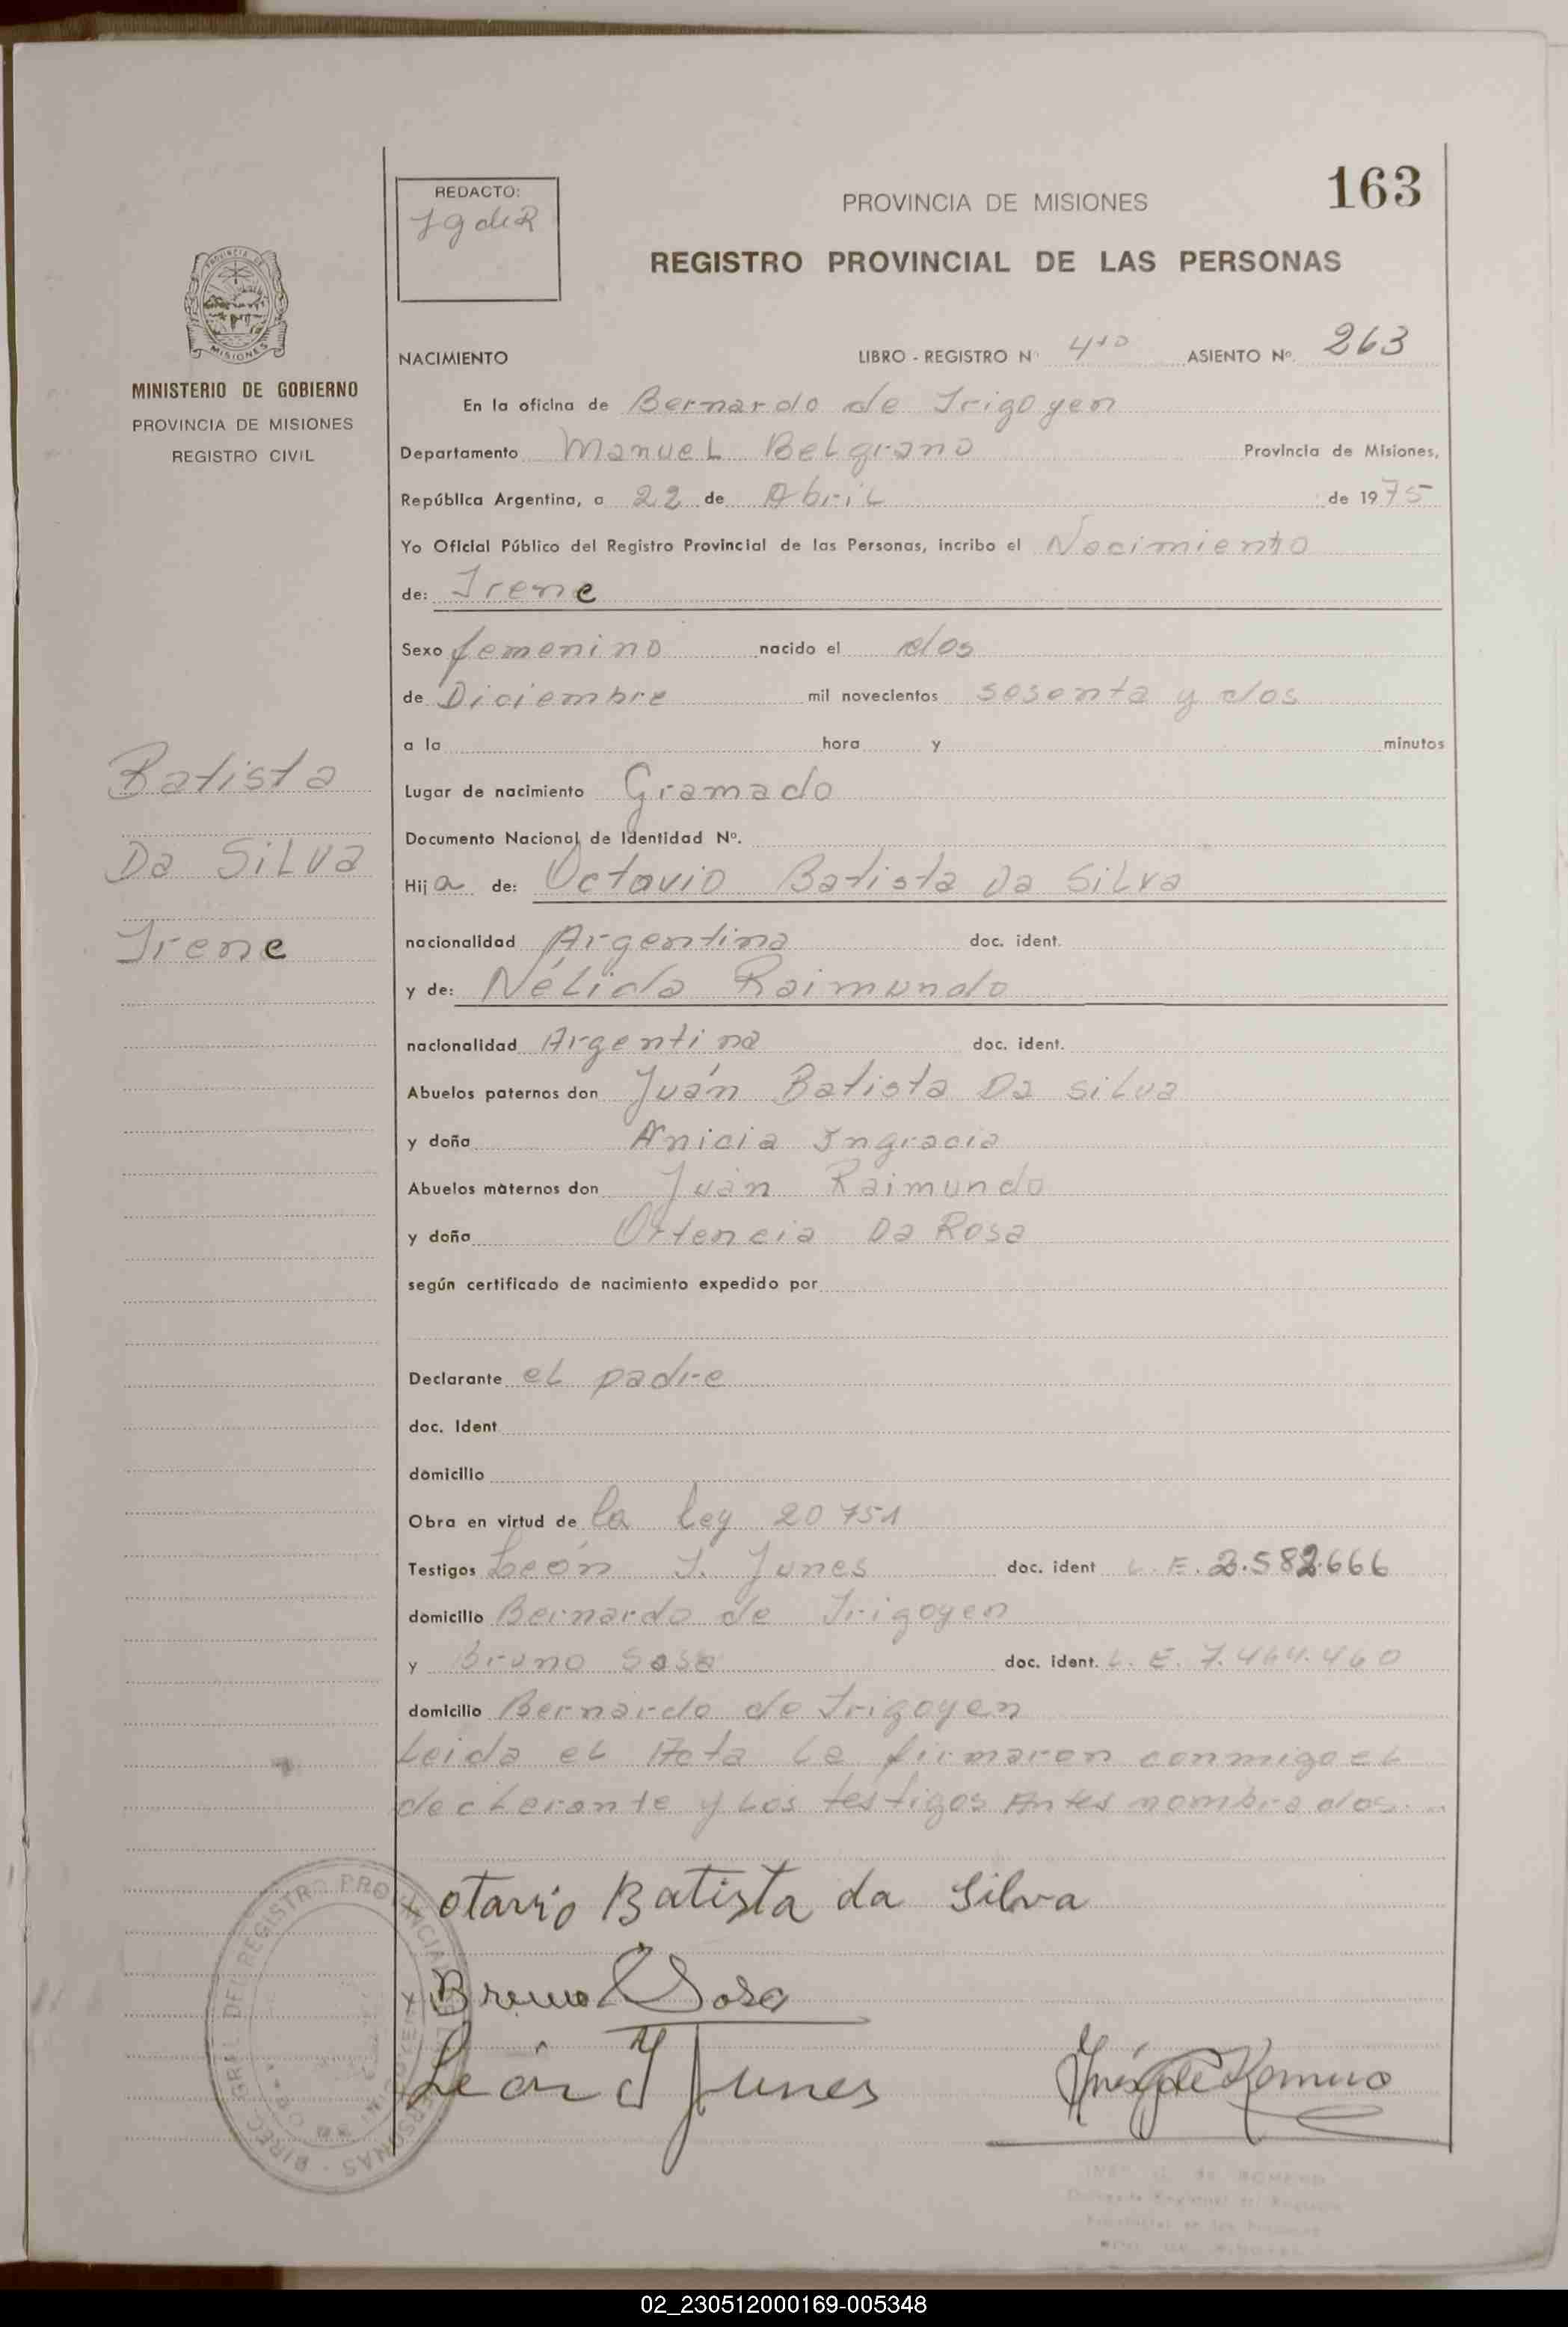 163
REDACTO:
PROVINCIA DE MISIONES
REGISTRO PROVINCIAL DE LAS PERSONAS
MISIONES
MINISTERIO DE GOBIERNO
PROVINCIA DE MISIONES
REGISTRO CIVIL
NACIMIENTO LIBRO - REGISTRO Nº 4to ASIENTO Nº. 263
En la oficina de Bernardo de Irigoyen
Departamento Manuel Belgrano Provincia de Misiones,
República Argentina, a 22 de Abril de 1975
Yo Oficial Público del Registro Provincial de las Personas, incribo el Nacimiento
de: Irene
Sexo femenino nacido el dos
de Diciembre mil novecientos sesenta y dos
a la hora y minutos
Batista
Da Silva
Irene
Lugar de nacimiento Gramado
Documento Nacional de Identidad Nº.
Hija de: Octavio Batista Da Silva
nacionalidad Argentina doc. ident.
y de: Nélida Raimundo
nacionalidad Argentina doc. ident.
Abuelos paternos don Juán Batista Da Silva
y doña Anicia Ingracia
Abuelos maternos don Juán Raimundo
y doña Ortencia Da Rosa
según certificado de nacimiento expedido por
Declarante el padre
doc. Ident
domicilio
Obra en virtud de la ley 20751
Testigos León J. Junes doc. ident L. E. 2.582.666
domicilio Bernardo de Irigoyen
y Bruno Sosa doc. ident. L. E. 7.464.460
domicilio Bernardo de Irigoyen
Leida el Acta le firmaron conmigo el
declerante y los testigos Antes nombrados.
otavio Batista da Silva
Bruno Sosa
León J Junes
DIREC. GRAL. DEL REGISTRO PROVINCIAL PERSONAS
02_230512000169-005348